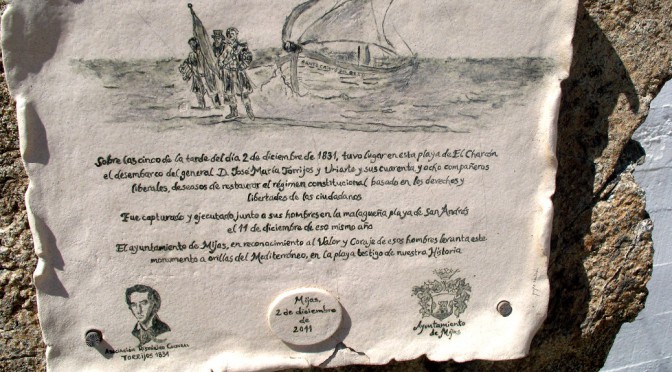 Sobre las cinco de la tarde del día 2 de diciembre de 1831, tuvo lugar en esta playa de El Charcón
el desembarco del general D. José María Torrijos y Uriarte y sus cuarenta y ocho compañeros
liberales, deseosos de restaurar el régimen constitucional basado en los derechos y
libertades de los ciudadanos
Fue capturado y ejecutado junto a sus hombres en la malagueña playa de San Andrés
el 11 de diciembre de ese mismo año
El ayuntamiento de Mijas, en reconocimiento al Valor y Coraje de esos hombres levanta este
monumento a orillas del Mediterráneo, en la playa testigo de nuestra Historia
Asociación Histórico Cultural
TORRIJOS 1831
Mijas
2 de diciembre
de
2011
Ayuntamiento
de Mijas